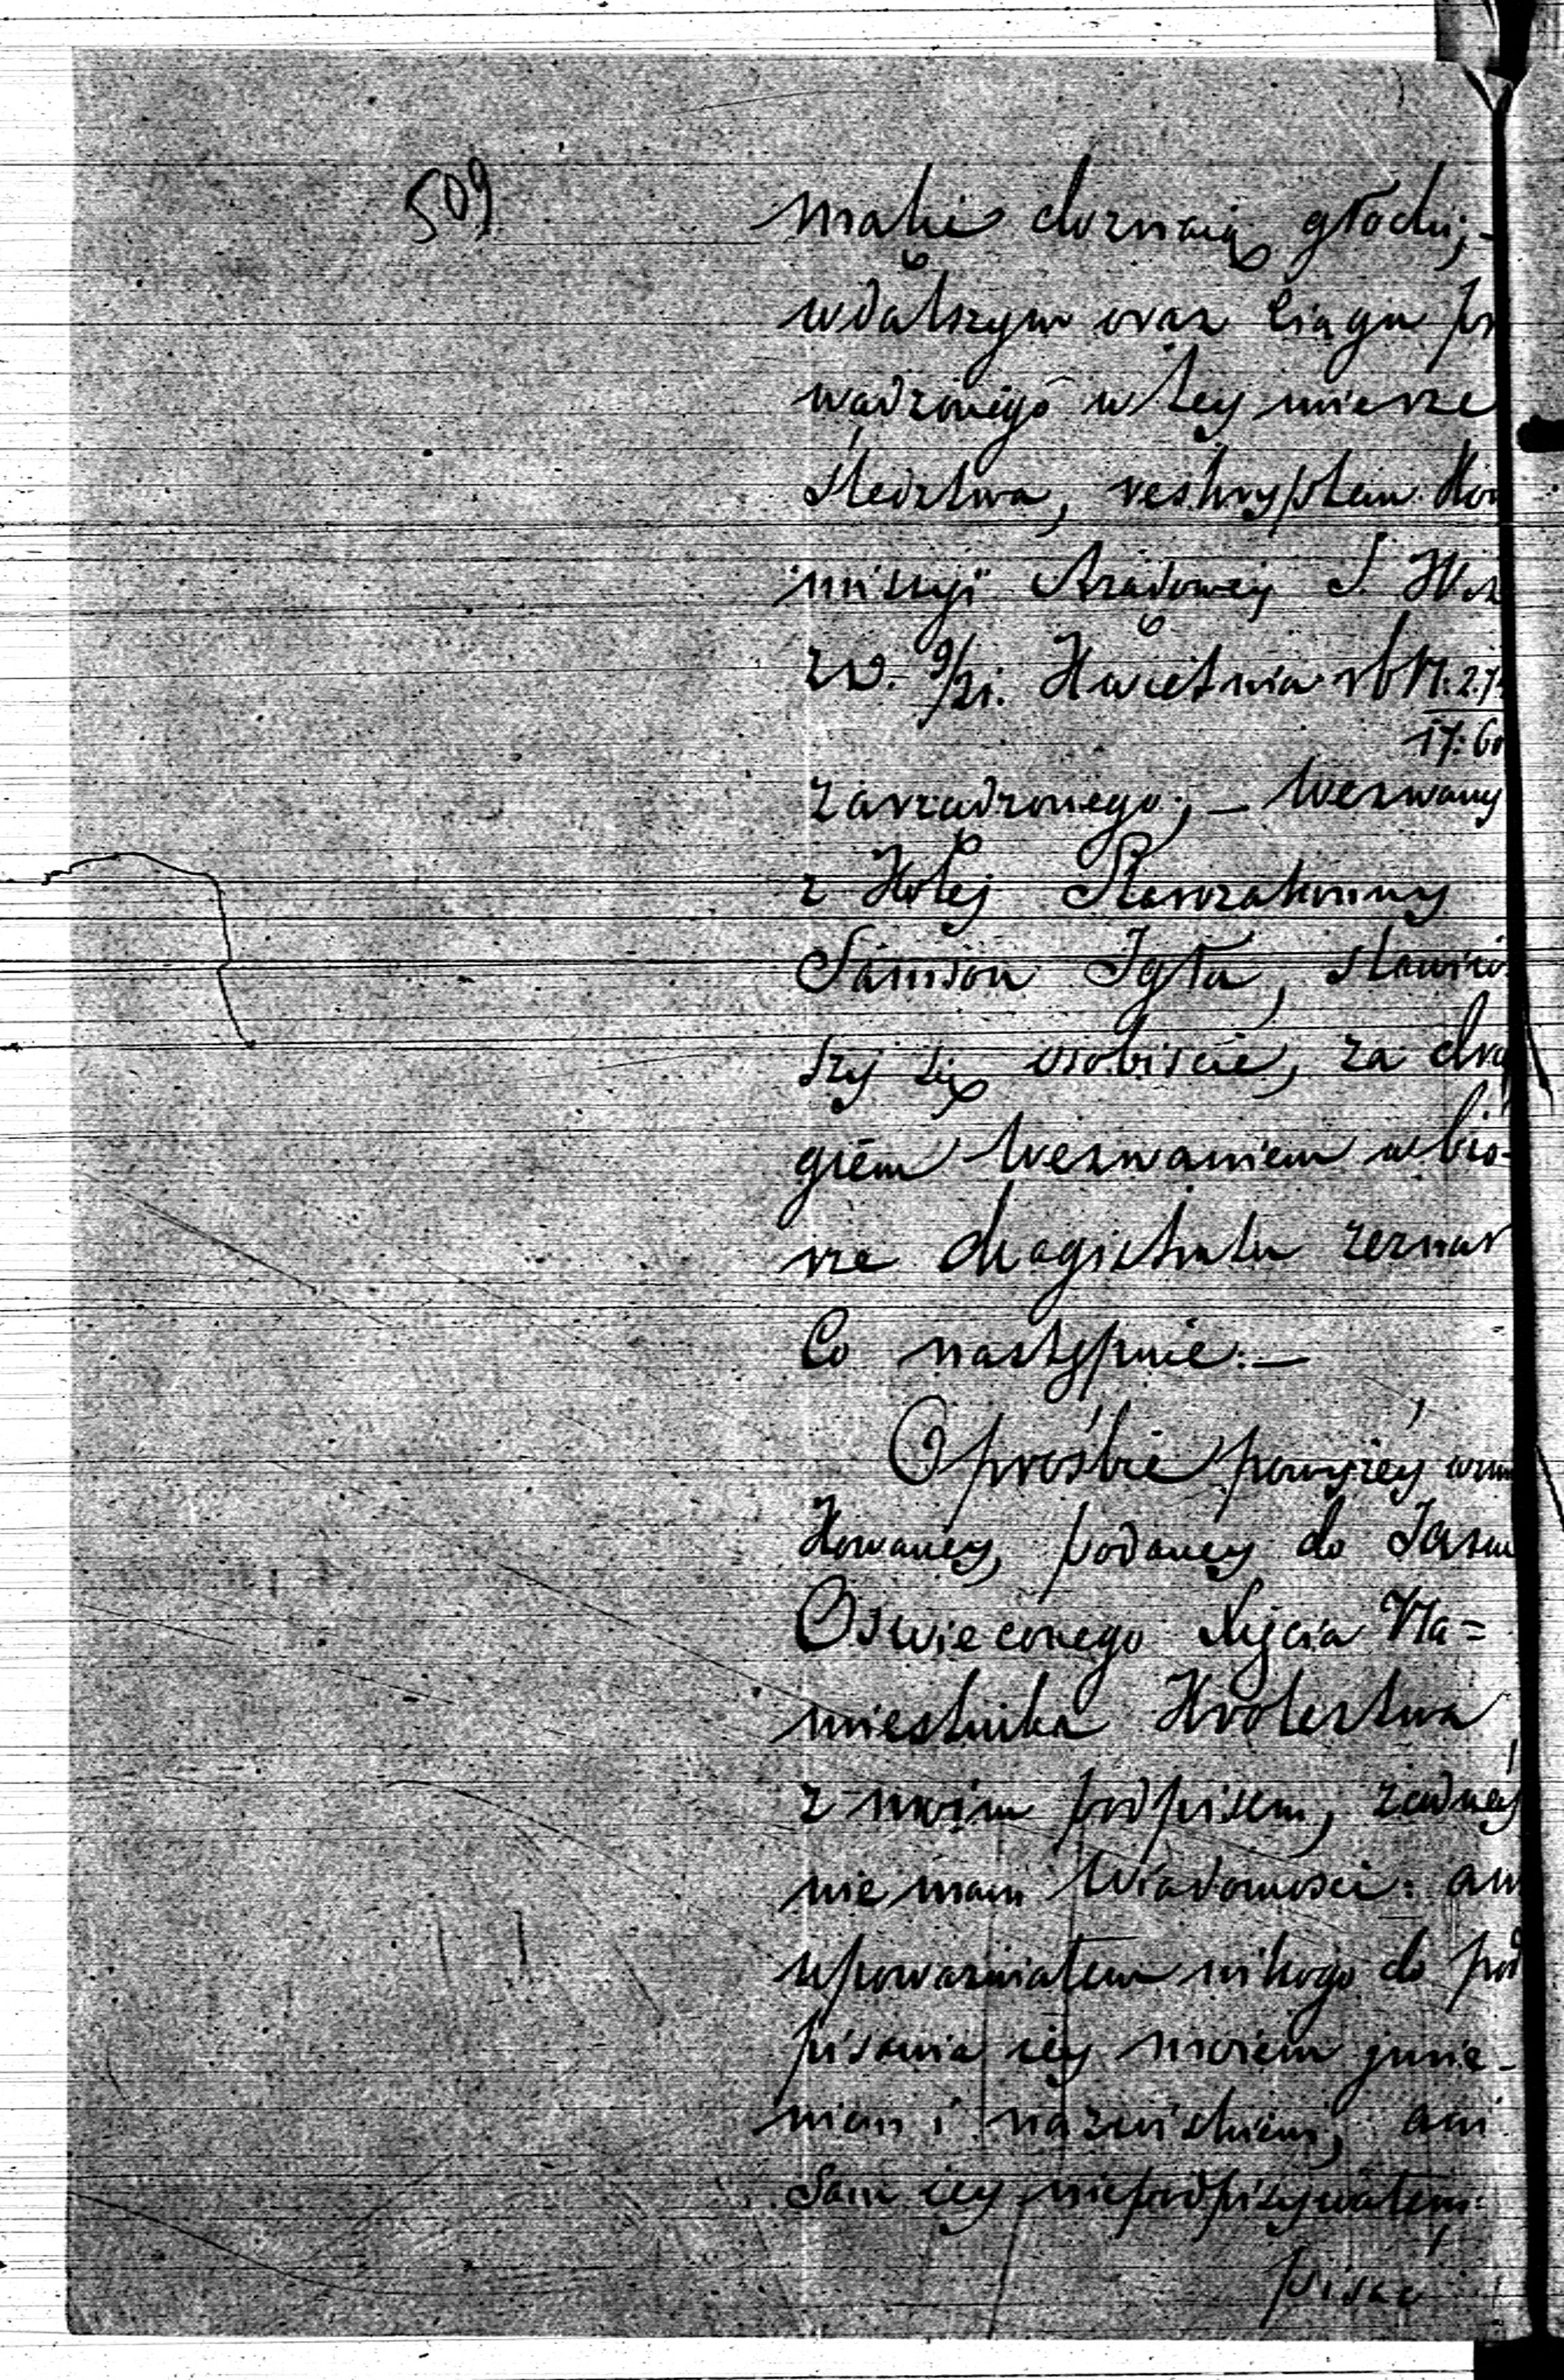 509
małki doznają głodu;-
wdalszym oraz Ciągu pr
wadzonego w tey mierze
śledztwa, reskryptem Kom
missyi Rządowey S. W. 
z d. 9/21. Kwietnia rb N. 2.7
17.60
zarządzonego; – Wezwany
z Koley Starozakonny
Samson Igła, stawiw
szy się osobiście, za dru
giem Wezwaniem w biu-
rze Magistratu zeznał
Co następuie. –
O prośbie powyżey wzm
kowaney, podaney do Jasnie
Oświeconego Xięcia Na=
miestnika Krolestwa
z moim podpisem, żadney
nie mam Wiadomości: ani
upoważniałem nikogo do pod
pisania iey moiem imie-
niem i nazwiskiem, ani
Sam iey niepodpisywałem.
pisać